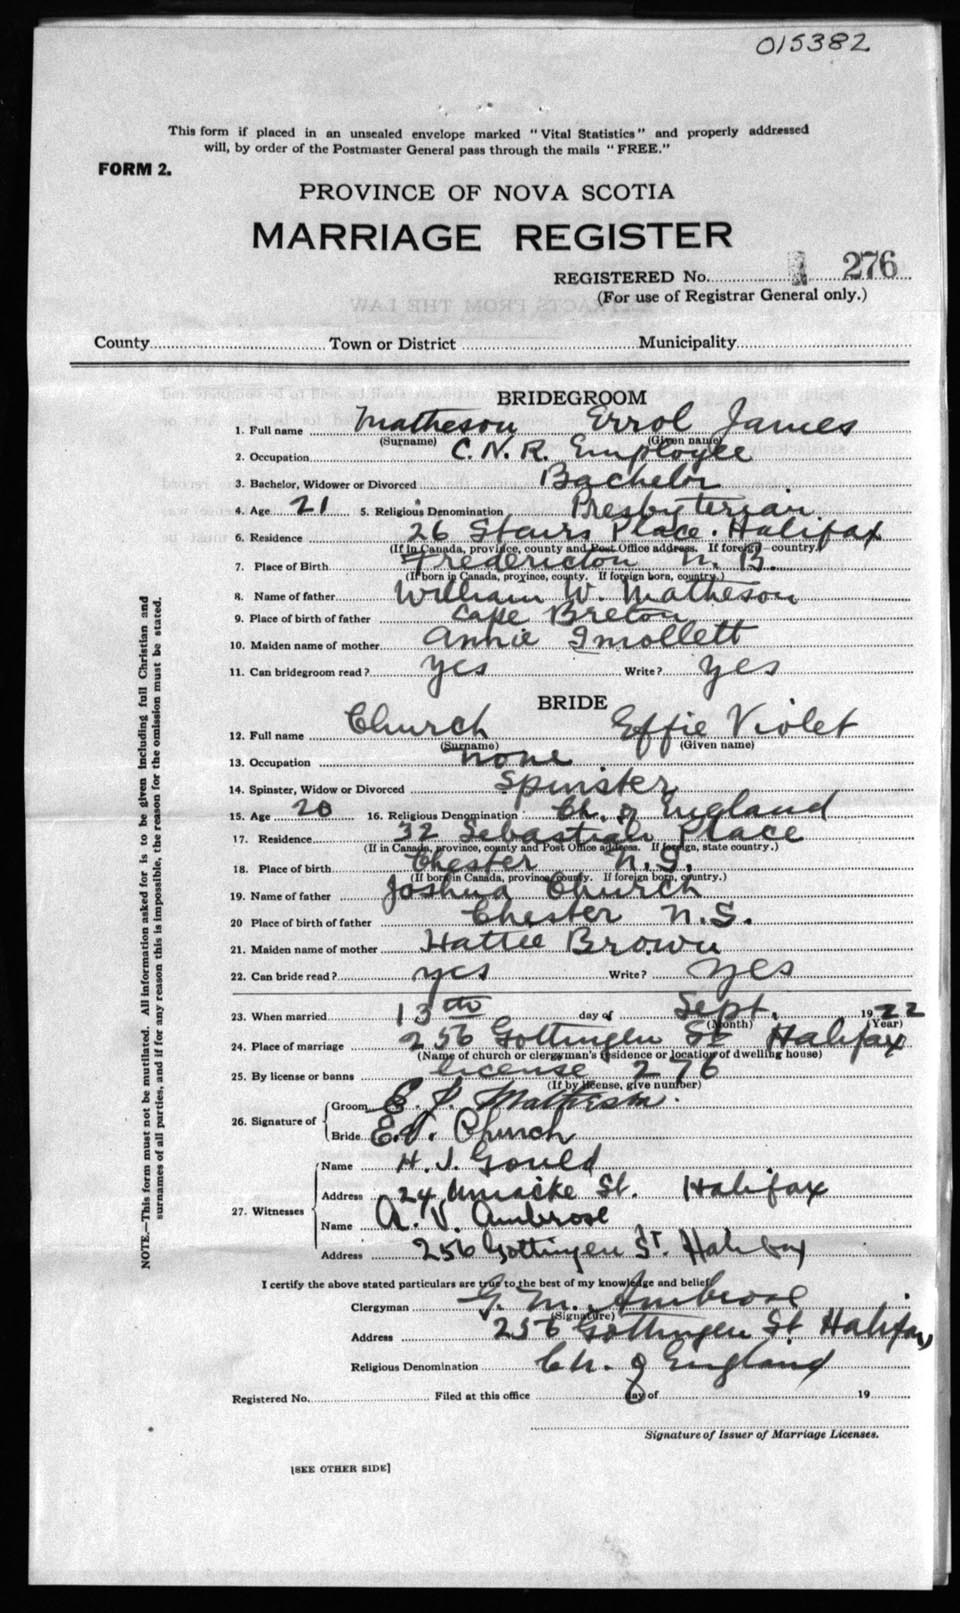 015382
This form if placed in an unsealed envelope marked "Vital Statistics" and properly addressed
will, by order of the Postmaster General pass through the mails "FREE."
FORM 2.
PROVINCE OF NOVA SCOTIA
MARRIAGE REGISTER
REGISTERED No. 276
(For use of Registrar General only.)
County Town or District Municipality
BRIDEGROOM
1. Full name Matheson Errol James
(Surname) (Given name)
2. Occupation C.N.R. Employee
3. Bachelor, Widower or Divorced Bachelor
4. Age 21 5. Religious Denomination Presbyterian
6. Residence 26 Stairs Place. Halifax
(If in Canada, province, county and Post Office address. If foreign country.)
7. Place of Birth Fredericton N.B.
(If born in Canada, province, county. If foreign born, country.)
8. Name of father William W. Matheson
9. Place of birth of father Cape Breton
10. Maiden name of mother Annie Smollett
11. Can bridegroom read? yes Write? yes
BRIDE
12. Full name Church Effie Violet
(Surname) (Given name)
13. Occupation none
14. Spinster, Widow or Divorced Spinster
15. Age 20 16. Religious Denomination Ch. of England
17. Residence 32 Sebastian Place
(If in Canada, province, county and Post Office address. If foreign, state country.)
18. Place of birth Chester N.S.
(If born in Canada, province, county. If foreign born, country.)
19. Name of father Joshua Church
20 Place of birth of father Chester N.S.
21. Maiden name of mother Hattie Brown
22. Can bride read? yes Write? yes
23. When married 13th day of Sept. 1922
(Month) (Year)
24. Place of marriage 256 Gottingen St Halifax
(Name of church or clergyman's residence or location of dwelling house)
25. By license or banns license 276
(If by license, give number)
26. Signature of Groom E. J. Matheson.
Bride E.V. Church
27. Witnesses Name H. J. Gould
Address 24 Uniacke St. Halifax
Name A. V. Ambrose
Address 256 Gottingen St. Halifax
I certify the above stated particulars are true to the best of my knowledge and belief.
Clergyman G. M. Ambrose
(Signature)
Address 256 Gottingen St Halifax
Religious Denomination Ch. of England
Registered No. Filed at this office day of 19
Signature of Issuer of Marriage Licenses.
[SEE OTHER SIDE]
NOTE.—This form must not be mutilated. All information asked for is to be given including full Christian and
surnames of all parties, and if for any reason this is impossible, the reason for the omission must be stated.